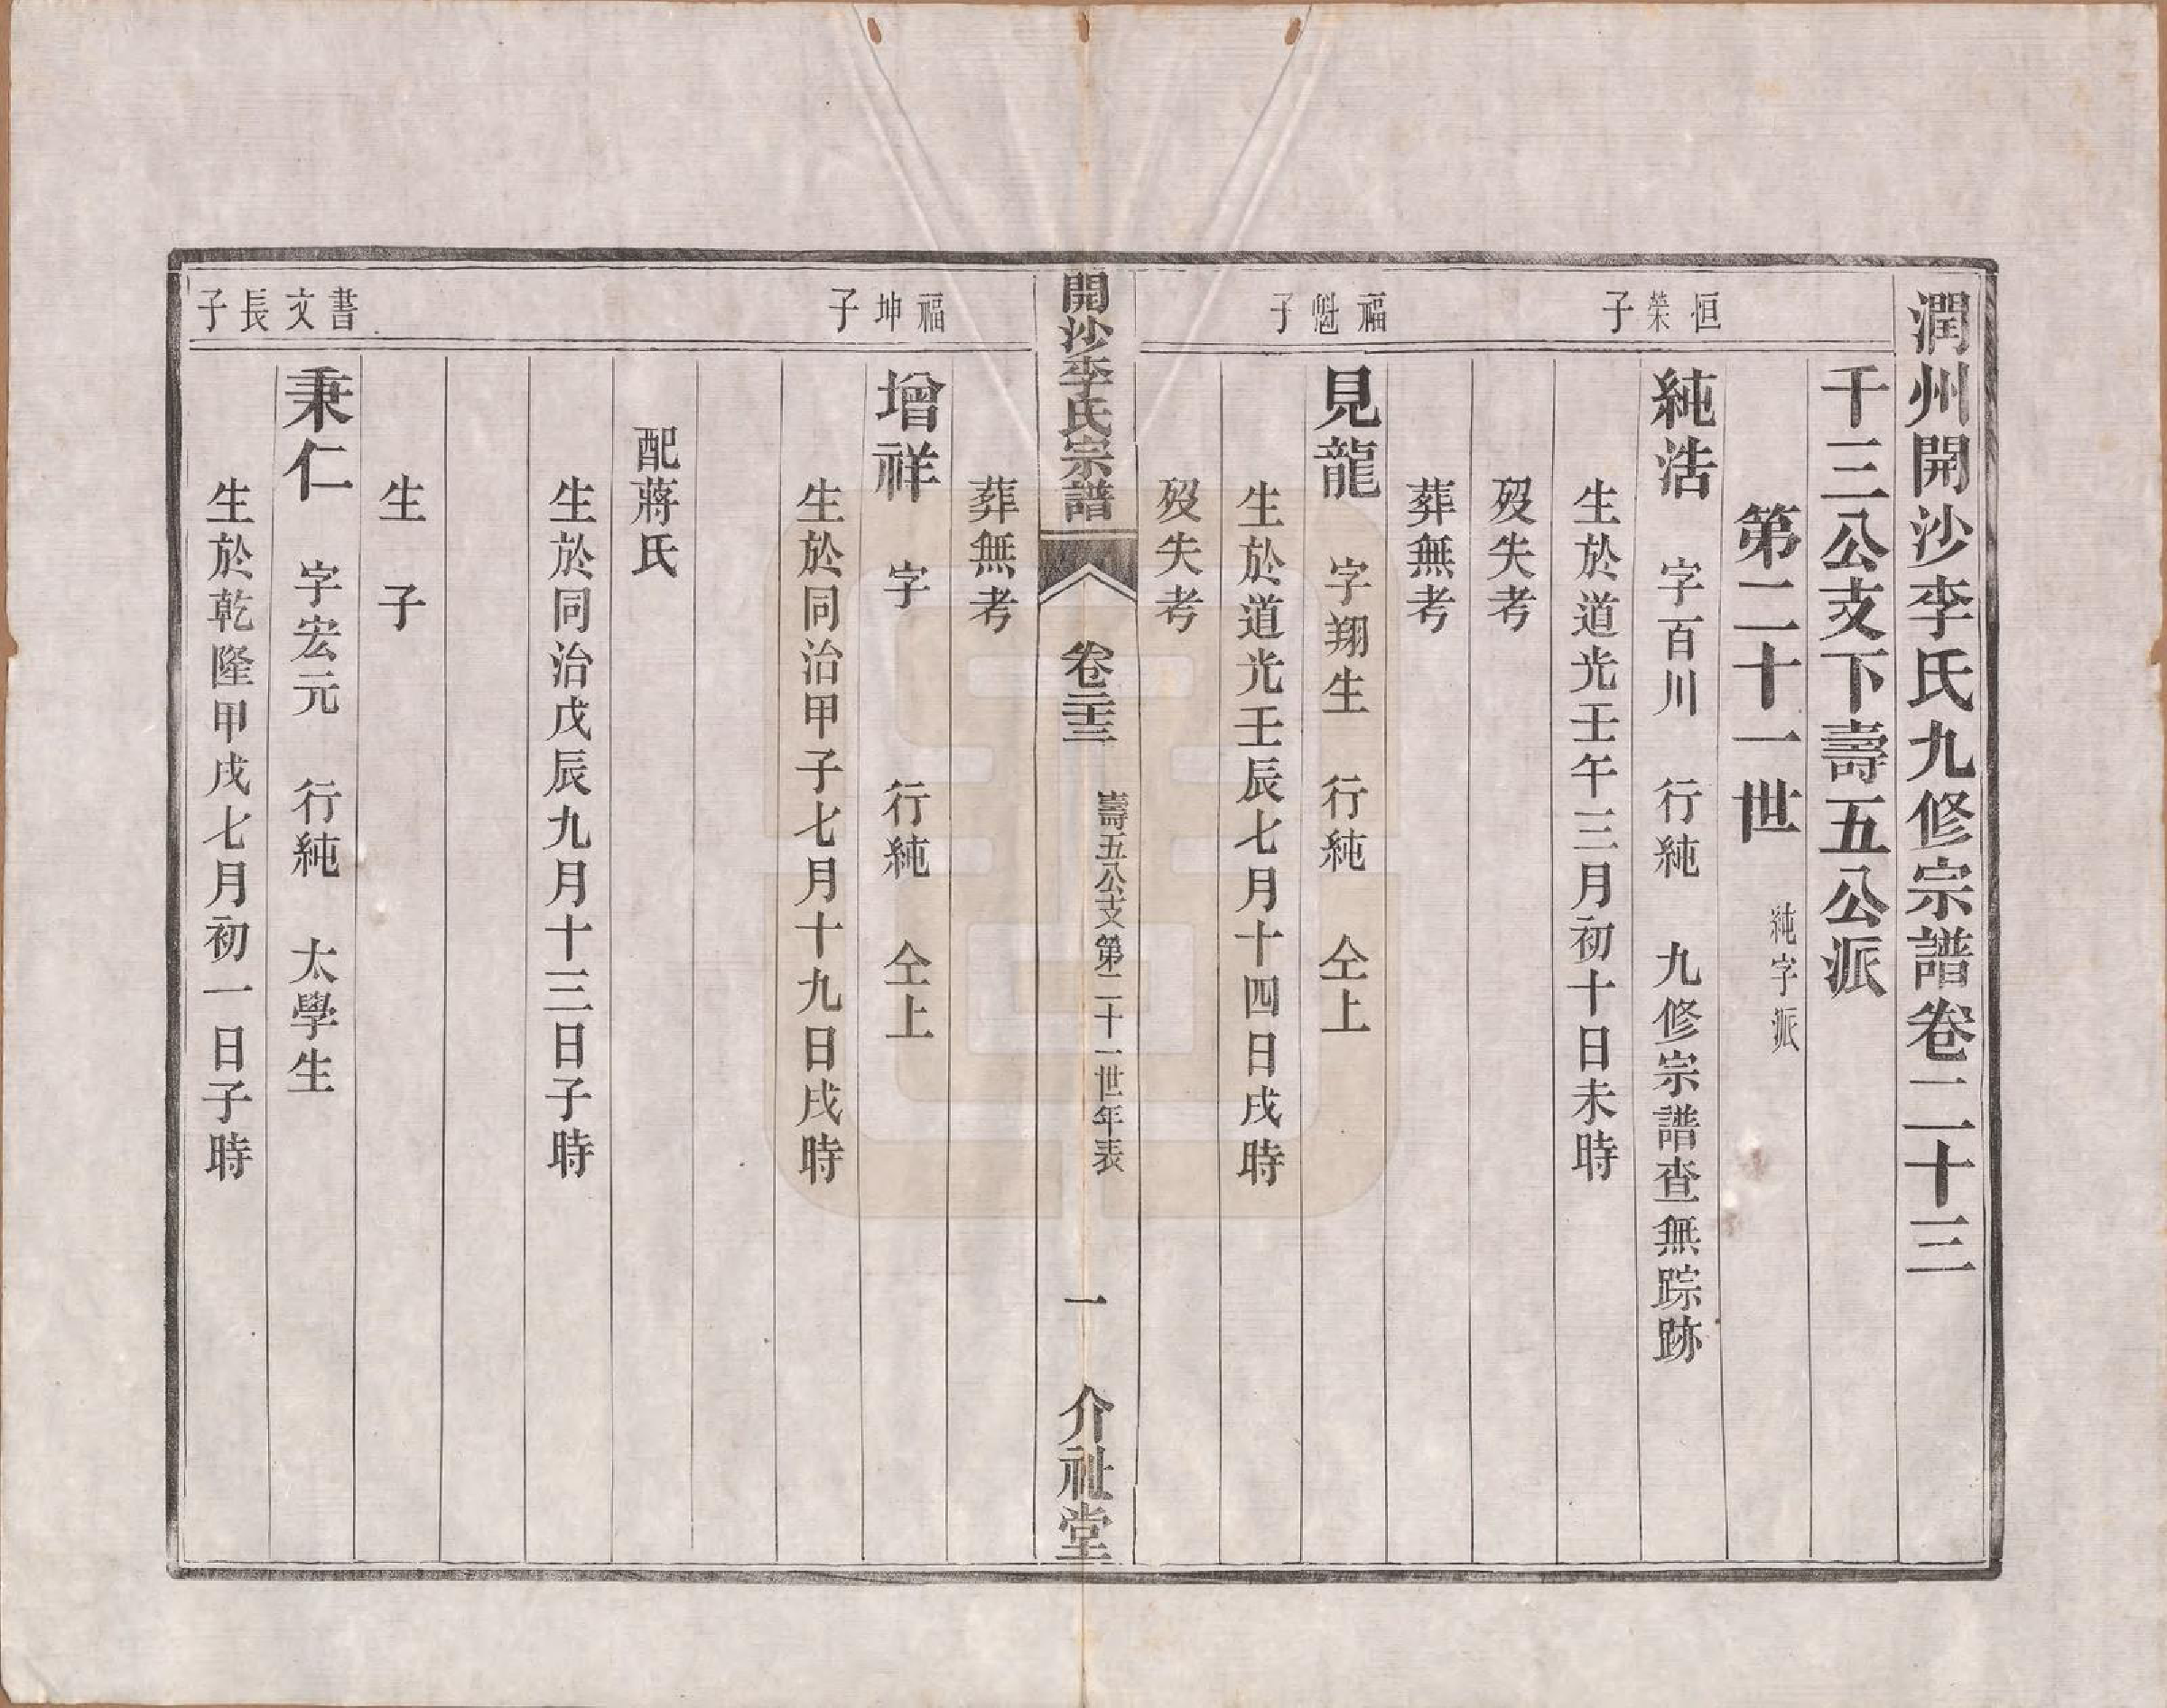 潤州開沙李氏九修宗譜卷二十三
千三公支下壽五公派
第二十一世 純字派
恒榮子
純浩 字百川 行純 九修宗譜查無踪跡
生於道光壬午三月初十日未時
歿失考
葬無考
福魁子
見龍 字翔生 行純 仝上
生於道光壬辰七月十四日戌時
歿失考
開沙李氏宗譜 卷二十三 壽五公支第二十一世年表 一 介祉堂
葬無考
福坤子
增祥 字 行純 仝上
生於同治甲子七月十九日戌時
配蔣氏
生於同治戊辰九月十三日子時
生 子
書文長子
秉仁 字宏元 行純 太學生
生於乾隆甲戌七月初一日子時